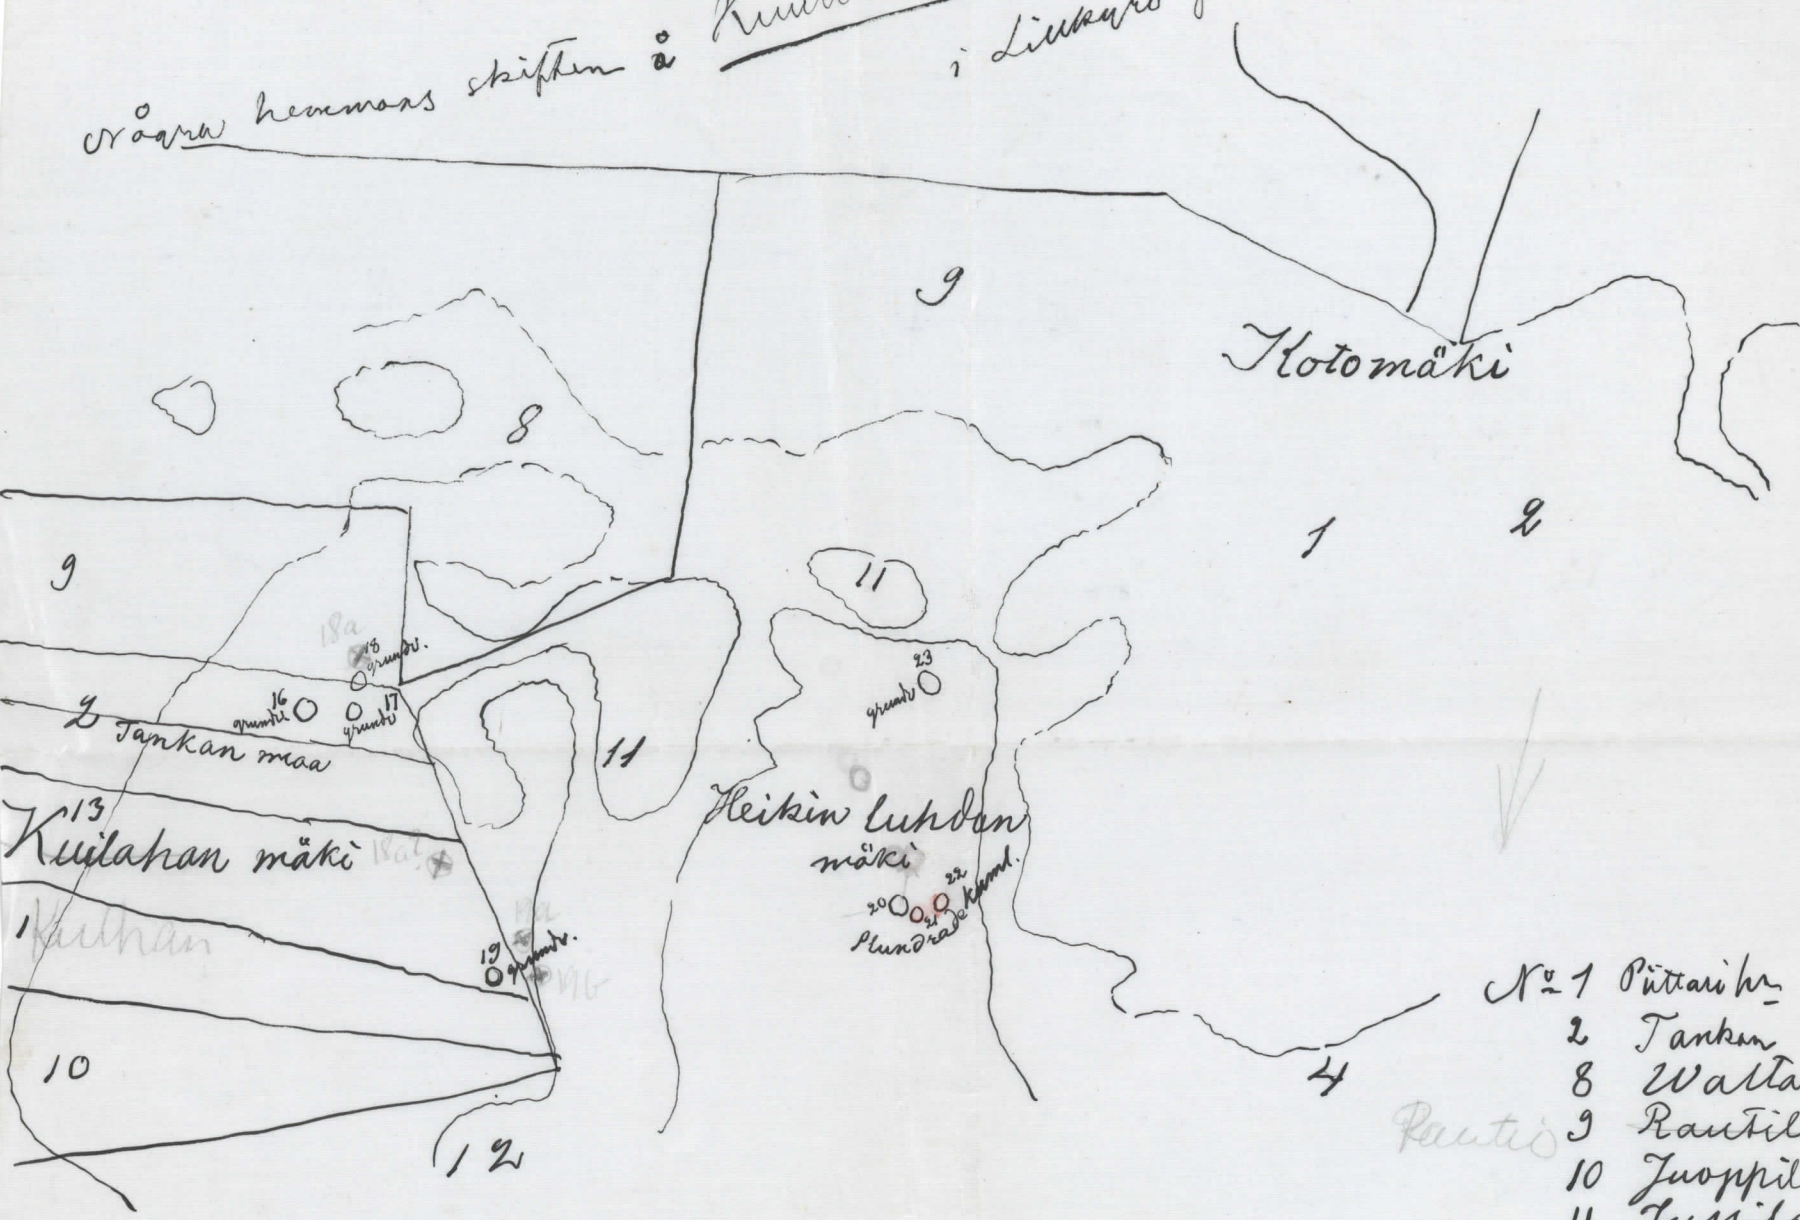 Några hemmans skiften å
i Lillkyro
9
Kotomäki
8
1 2
9
11
18a
18
grundv.
23
grundv
16
grundv
17
grundv
2 Tankan maa
11
13
Heikin luhdan
mäki
Kuilahan mäki
18a?
22
20
21
Plundrade kuml.
1
Kuilhan
19a
19
grundv.
19b
No 1 Piittari hn
2 Tankan
4
8 Walta
10
Rautio
9 Rautil
12
10 Juoppil
11